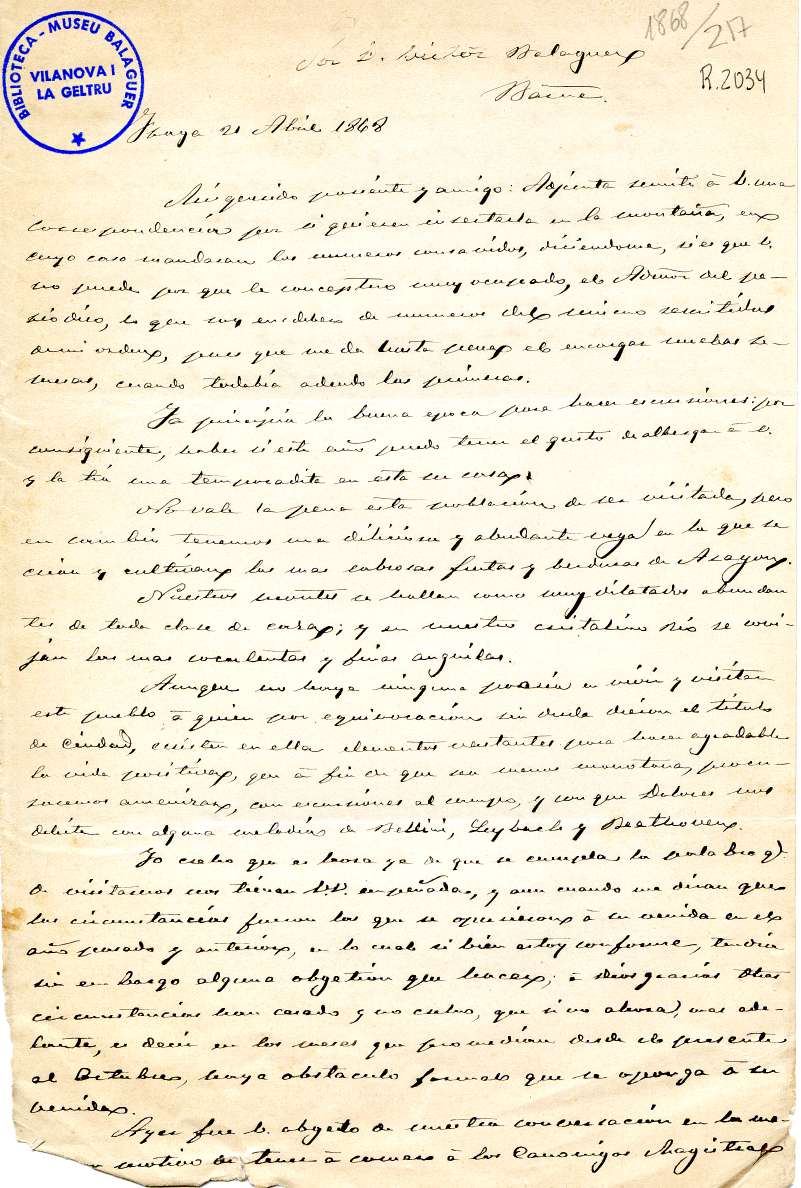 BIBLIOTECA - MUSEU BALAGUER
VILANOVA I
LA GELTRU
1868/217
R.2034
Sor D. Victor Balaguer
Barna.
Fraga 21 Abril 1868
Mi querido pariente y amigo: Adjunta remito à V. una
correspondencia por si quieren insertarla en la montaña, en
cuyo caso mandaran los numeros consavidos, diciendome, si es que V.
no puede por que le conceptuo muy ocupado, el Admor del pe-
riódico, lo que soy en deber de numeros del mismo remitidos
de mi orden, pues que me da hasta pena el encargar nuebas re-
mesas, cuando todabia adeudo las primeras.
Ya principia la buena epoca para hacer escursiones: por
consiguiente, haber si este año puedo tener el gusto de albergar à V.
y la tia una temporadita en esta su casa.
No vale la pena esta poblacion de ser visitada, pero
en cambio tenemos una deliciosa y abundante vega en la que se
crian y cultivan las mas sabrosas frutas y berduras de Aragon.
Nuestros montes se hallan como muy dilatados abundan
tes de toda clase de caza; y en nuestro cristalino rio se
las mas suculentas y finas anguilas.
Aunque no haya ninguna poesia en vivir y visitar
este pueblo à quien por equivocacion sin duda dieron el titulo
de Ciudad, ecsisten en ella elementos vastantes para hacer agradable
la vida positiva, que à fin de que sea menos monotona, procu-
raremos amenizar, con escursiones al campo, y con que Dolores nos
deleite con alguna melodia de Bellini, Leybach y Beathoven.
Yo creho que es hora ya de que se cumpla la palabra q.
de visitarnos nos tienen V.V. empeñada, y aun cuando me diran que
las circunstancias fueron las que se opusieron à su venida en el
año pasado y anterior, en lo cual si bien estoy conforme, tendria
sin embargo alguna obgetion que hacer; à Dios gracias otras
circunstancias han cesado y no creho, que si no ahora, mas ade-
lante, es decir en los meses que promedian desde el presente
al Octubre, haya obstaculo formal que se oponga à su
venida.
Ayer fue V. obgeto de nuestra conversacion en la me-
motivo de tener à comer à los Canonigos Magistral